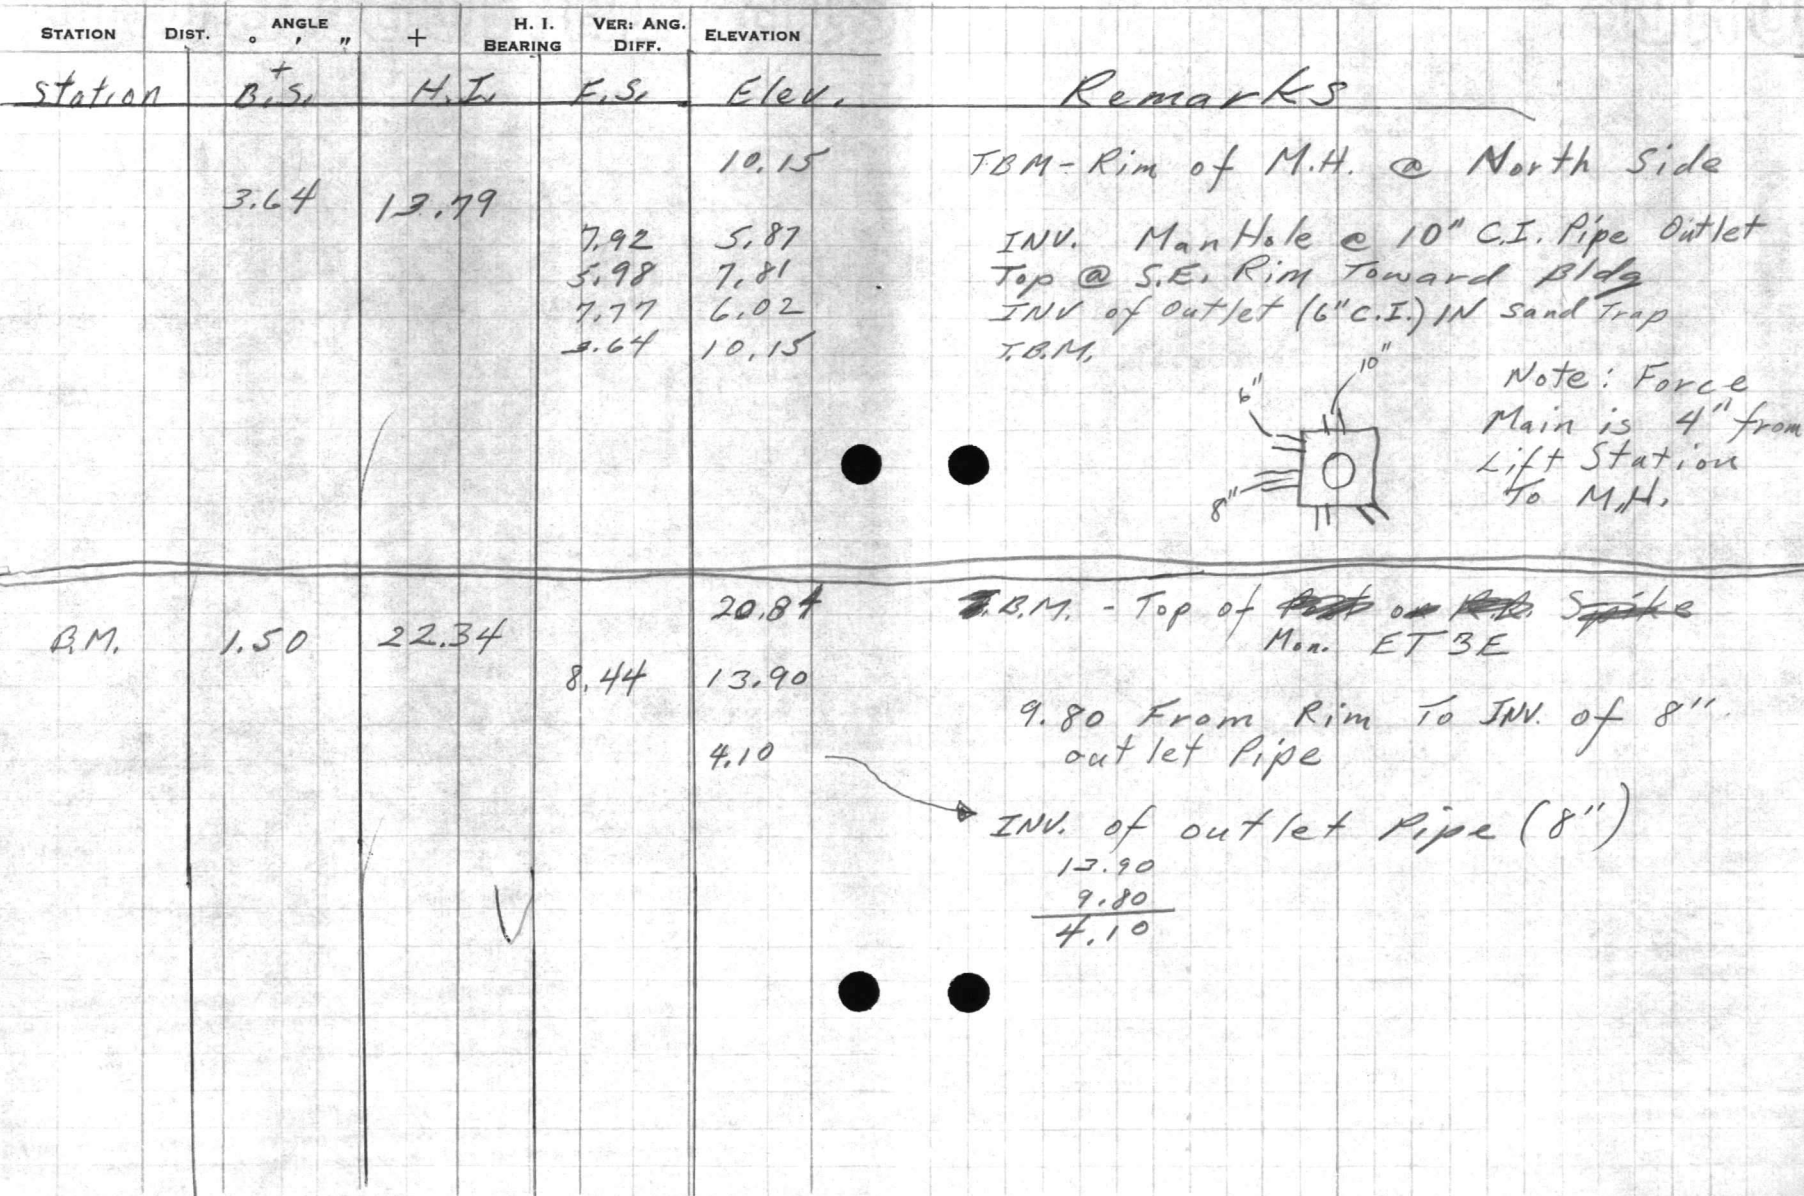 STATION DIST. ANGLE ° ′ ″ + H. I. BEARING VER: ANG. DIFF. ELEVATION
Station B.S. + H.I. F.S. Elev. Remarks
10.15 T.B.M- Rim of M.H. @ North Side
3.64 13.79
7.92 5.87 INV. ManHole @ 10" C.I. Pipe Outlet
5.98 7.81 Top @ S.E. Rim Toward Bldg
7.77 6.02 INV of Outlet (6" C.I.) IN Sand Trap
3.64 10.15 T.B.M.
10"
6"
8"
Note: Force
Main is 4" from
Lift Station
To M.H.
20.84 B.M. - Top of
B.M. 1.50 22.34 Mon. ET 3E
8.44 13.90
9.80 From Rim To INV. of 8"
4.10 outlet Pipe
INV. of outlet Pipe (8")
13.90
9.80
4.10